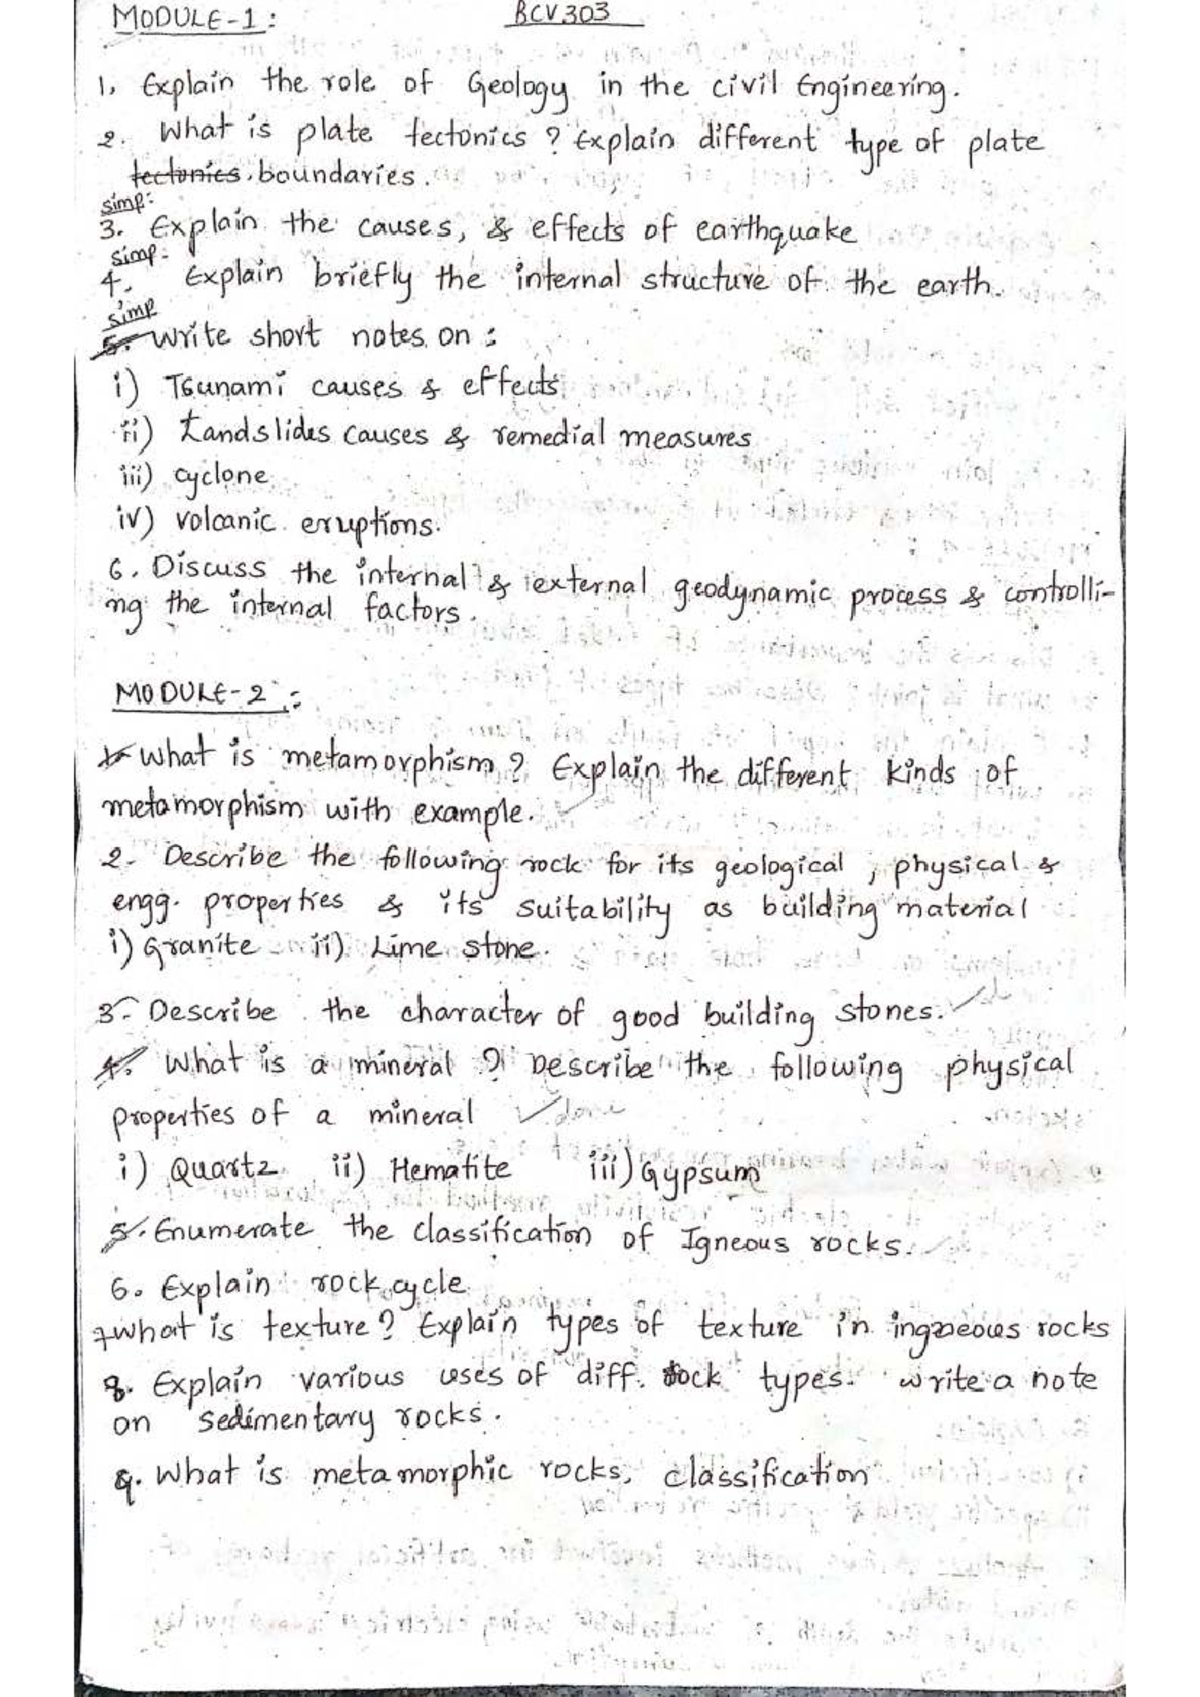 MODULE-1: BCV303
1. Explain the role of Geology in the civil Engineering.
2. What is plate tectonics? Explain different type of plate
tectonics. boundaries.
simp:
3. Explain the causes, & effects of earthquake
simp:
4. Explain briefly the internal structure of the earth.
simp
5. Write short notes on:
i) Tsunami causes & effects
ii) Landslides causes & remedial measures
iii) cyclone
iv) volcanic eruptions.
6. Discuss the internal & external geodynamic process & controlli-
ng the internal factors.
MODULE-2:
1. What is metamorphism? Explain the different kinds of
metamorphism with example.
2. Describe the following rock for its geological, physical &
engg. properties & its suitability as building material
i) Granite ii) Lime stone.
3. Describe the character of good building stones.
4. What is a mineral? Describe the following physical
properties of a mineral done
i) Quartz ii) Hematite iii) Gypsum
5. Enumerate the classification of Igneous rocks.
6. Explain rock cycle
7 What is texture? Explain types of texture in ingneous rocks
8. Explain various uses of diff. rock types. write a note
on sedimentary rocks.
9. What is metamorphic rocks, classification